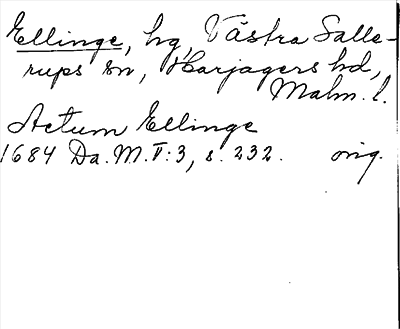 Ellinge, hg, Västra Salle-
rups sn, Harjagers hd,
Malm. l.
Actum Ellinge
1684 Da. M. V:3, s. 232. orig.